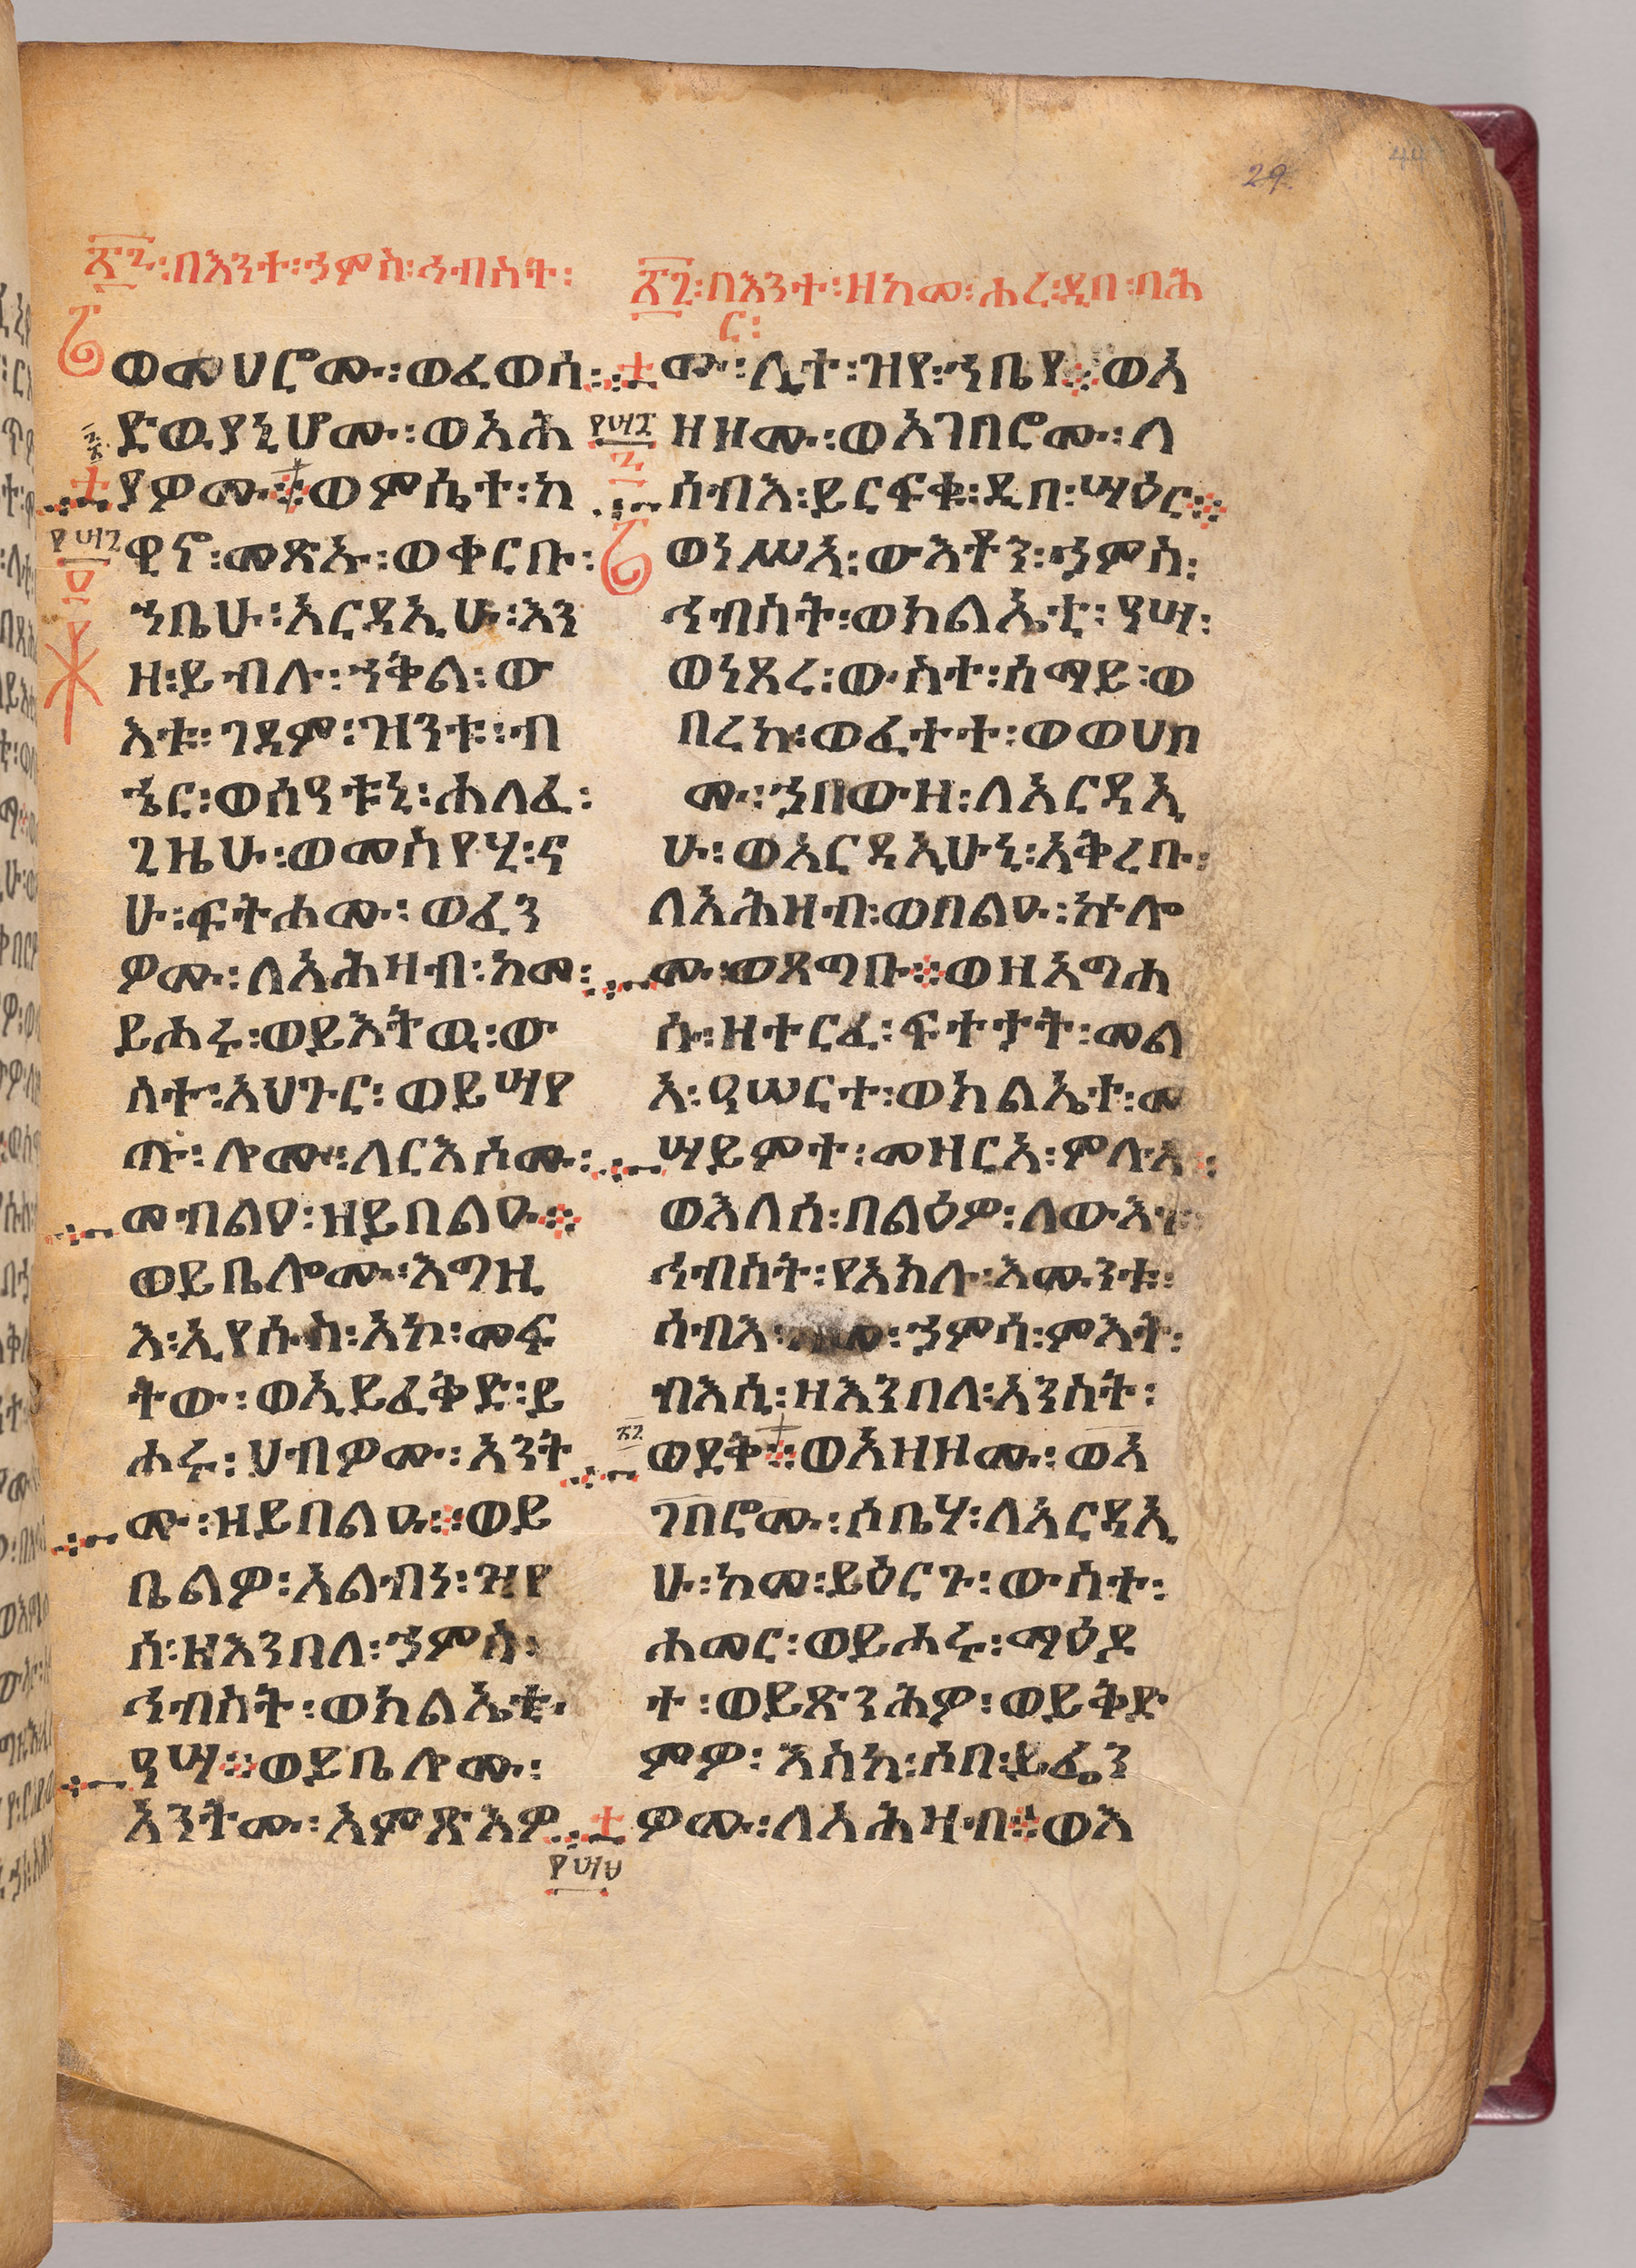 29
፳፭፡በእንተ፡ኃምስ፡ኅብስት፡
ወመሀሮሙ፡ወፈወሰ፡
ድውያኒሆሙ፡ወአሕ
የዎሙ።ወምሴተ፡ከ
ዊኖ፡መጽኡ፡ወቀርቡ፡
ኀቤሁ፡አርዳኢሁ፡እን
ዘ፡ይብሉ፡ኀቅል፡ው
እቱ፡ገዳም፡ዝንቱ፡ብ
ሔር፡ወሰዓቱኒ፡ሐለፈ፡
ጊዜሁ፡ወመስየሂ፡ና
ሁ፡ፍትሐሙ፡ወፈን
ዎሙ፡ለአሕዛብ፡ከመ፡
ይሑሩ፡ወይእትዉ፡ው
ስተ፡አህጉር፡ወይሣየ
ጡ፡ሎሙ፡ለርእሶሙ፡
መብልዐ፡ዘይበልዑ።
ወይቤሎሙ፡እግዚ
እ፡ኢየሱስ፡አኮ፡መፍ
ትው፡ወኢይፈቅድ፡ይ
ሑሩ፡ሀብዎሙ፡አንት
ሙ፡ዘይበልዑ።ወይ
ቤልዎ፡አልብነ፡ዝየ
ሰ፡ዘእንበለ፡ኃምስ፡
ኅብስት፡ወክልኤቲ፡
ዓሣ።ወይቤሎሙ፡
አንትሙ፡አምጽእዎ
፳፯፡በእንተ፡ዘከመ፡ሐረ፡ዲበ፡ባሕ
ር፡
ሙ፡ሊተ፡ዝየ፡ኀቤየ።ወአ
ዘዘሙ፡ወአገበሮሙ፡ለ
ሰብእ፡ይርፍቁ፡ዲበ፡ሣዕር።
ወነሥአ፡ውእቶን፡ኃምስ፡
ኅብስት፡ወክልኤቲ፡ዓሣ፡
ወነጸረ፡ውስተ፡ሰማይ፡ወ
በረከ፡ወፈተተ፡ወወሀቦ
ሙ፡ኅበውዘ፡ለአርዳኢ
ሁ፡ወአርዳኢሁኒ፡አቅረቡ፡
ለአሕዛብ፡ወበልዑ፡ኵሎ
ሙ፡ወጸግቡ።ወዘአግሐ
ሱ፡ዘተርፈ፡ፍተታት፡መል
አ፡ዓሠርተ፡ወክልኤተ፡መ
ሣይምተ፡መዝርአ፡ምሉአ፡
ወእለሰ፡በልዕዎ፡ለውእቱ፡
ኅብስት፡የአክሉ፡እሙንቱ፡
ሰብእ፡ ኃምሳ፡ምእት፡
ብእሲ፡ዘእንበለ፡አንስት፡
ወደቅ።ወአዘዘሙ፡ወአ
ገበሮሙ፡ሶቤሃ፡ለአርዳኢ
ሁ፡ከመ፡ይዕርጉ፡ውስተ፡
ሐመር፡ወይሑሩ፡ማዕዶ
ተ፡ወይጽንሕዎ፡ወይቅድ
ምዎ፡እስከ፡ሶበ፡ይፌን
ዎሙ፡ለአሕዛብ።ወእ